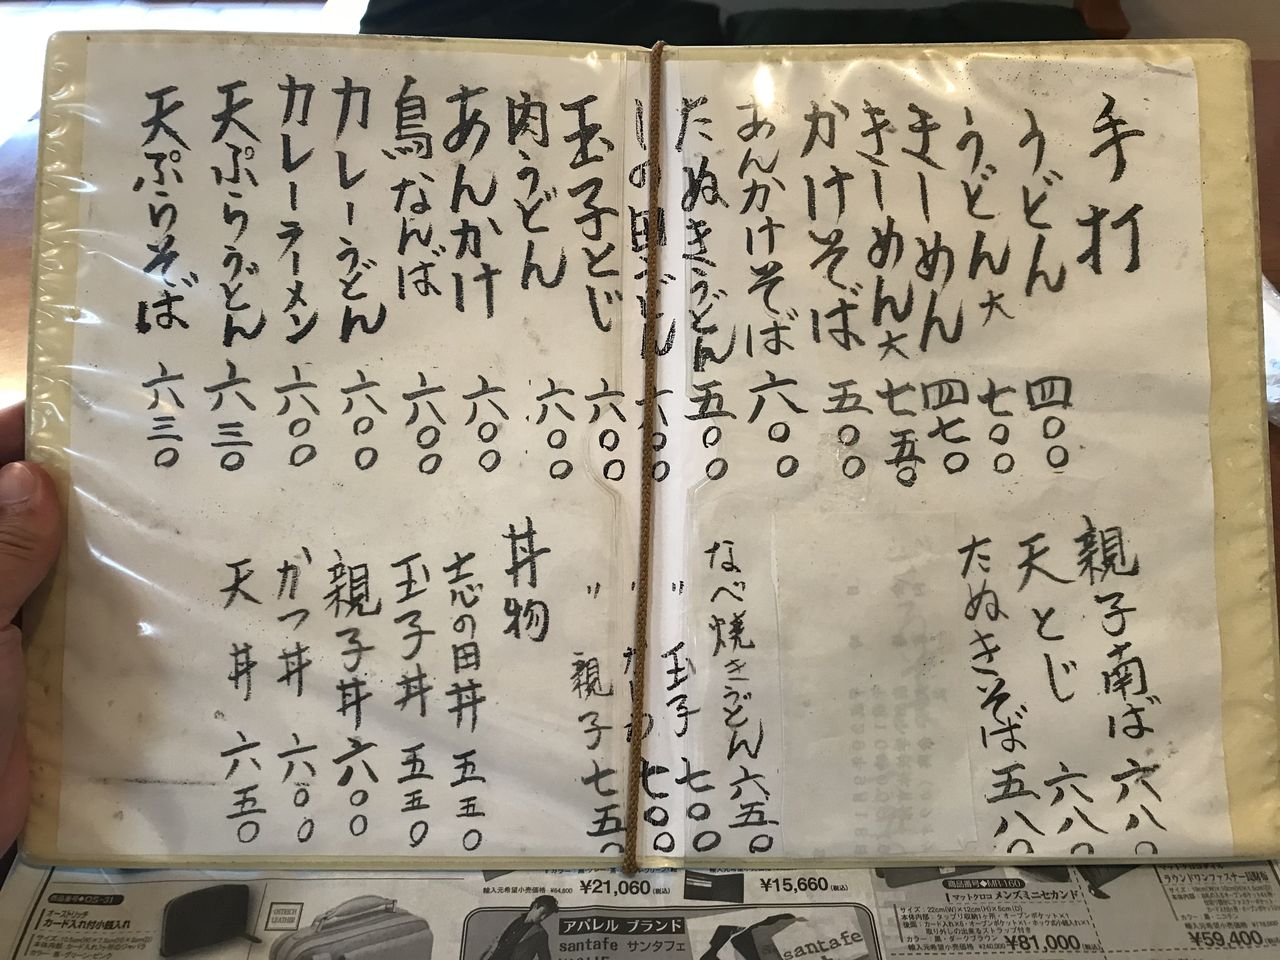 手打
うどん 四〇〇
うどん大 七〇〇
きしめん 四七〇
きしめん大 七五〇
かけそば 五〇〇
あんかけそば 六〇〇
たぬきうどん 五〇〇
しの田うどん 六〇〇
玉子とじ 六〇〇
肉うどん 六〇〇
あんかけ 六〇〇
鳥なんば 六〇〇
カレーうどん 六〇〇
カレーラーメン 六〇〇
天ぷらうどん 六三〇
天ぷらそば 六三〇
親子南ば 六八〇
天とじ 六八〇
たぬきそば 五八〇
なべ焼きうどん 六五〇
〃 玉子 七〇〇
〃 七〇〇
〃 親子 七五〇
丼物
志の田丼 五五〇
玉子丼 五五〇
親子丼 六〇〇
かつ丼 六〇〇
天丼 六五〇
商品番号◆OS-31
オーストリッチ
カード入れ付小銭入れ
OSTRICH LEATHER
輸入元希望小売価格 ¥64,800 ¥21,060(税込)
¥15,660(税込)
アパレル ブランド
santafe サンタフェ
santafe
商品番号◆MR-160
マットクロコ メンズミニセカンド
¥81,000(税込)
ラウンドファスナー長財布
¥59,400(税込)